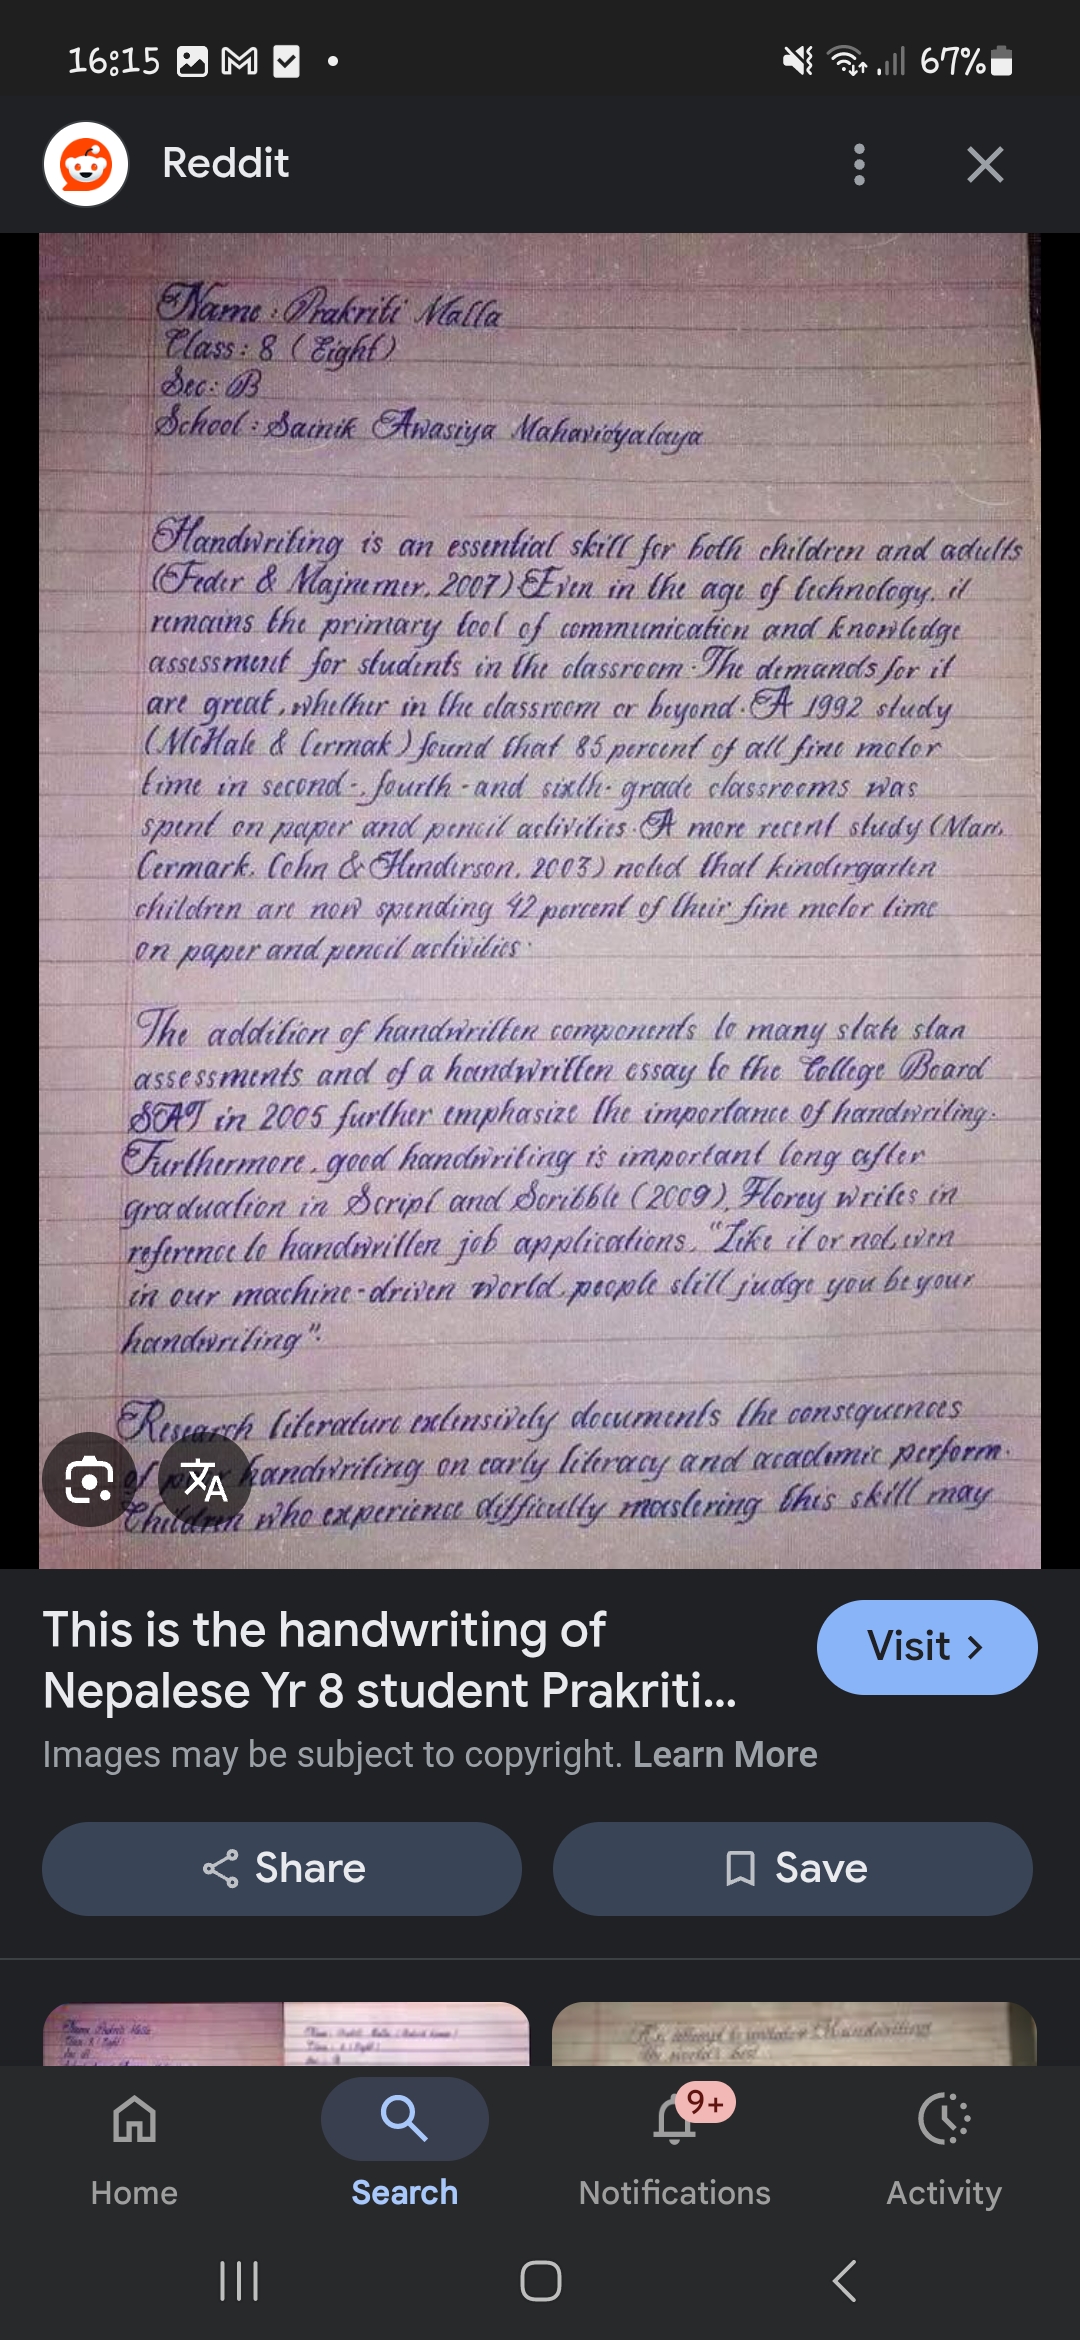 16:15
67%
Reddit
Name : Prakriti Malla
Class : 8 ( Eight )
Sec : B
School : Sainik Awasiya Mahavidyalaya
Handwriting is an essential skill for both children and adults
(Feder & Majnemer, 2007) Even in the age of technology, it
remains the primary tool of communication and knowledge
assessment for students in the classroom. The demands for it
are great, whether in the classroom or beyond. A 1992 study
(McHale & Cermak) found that 85 percent of all fine motor
time in second-, fourth-and sixth-grade classrooms was
spent on paper and pencil activities. A more recent study (Marr,
Cermark, Cohn & Henderson, 2003) noted that kindergarten
children are now spending 42 percent of their fine motor time
on paper and pencil activities.
The addition of handwritten components to many state stan
assessments and of a handwritten essay to the College Board
SAT in 2005 further emphasize the importance of handwriting.
Furthermore, good handwriting is important long after
graduation in Script and Scribble (2009), Florey writes in
reference to handwritten job applications, "Like it or not, even
in our machine-driven world, people still judge you be your
handwriting".
Research literature extensively documents the consequences
of handwriting on early literacy and academic perform.
Children who experience difficulty mastering this skill may
This is the handwriting of
Nepalese Yr 8 student Prakriti...
Visit >
Images may be subject to copyright. Learn More
Share
Save
9+
Home
Search
Notifications
Activity